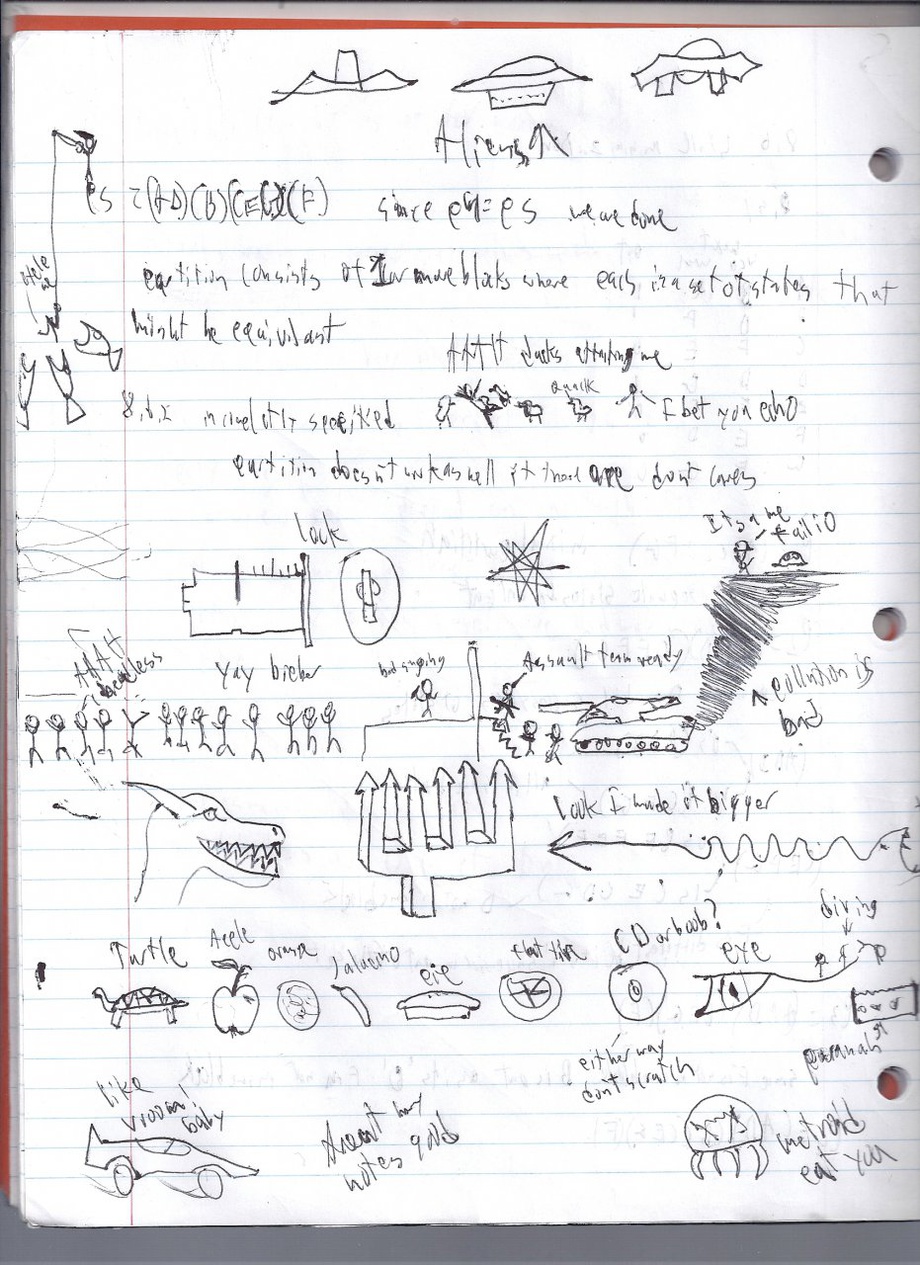 Aliens
ρs = (AD)(B)(CEG)(F) since ρ4 = ρs we are done
partition consists of 1 or more blocks where each is a set of states that
might be equivilant
AAAH ducks attacking me
Quack
8.6.2 incompletely specified
I bet you echo
partition doesn't work as well if there are don't cares
look
Its a me
failio
AAAH
faceless
Yay bieber
bad singing
Assault team ready
^ pollution is
bad
look I made it bigger
diving
Turtle Apple orange Jalapino pie flat tire CD or boob? eye
either way
don't scratch
piranah
like
vroom!
baby
Arent my
notes good
metroid
eat you